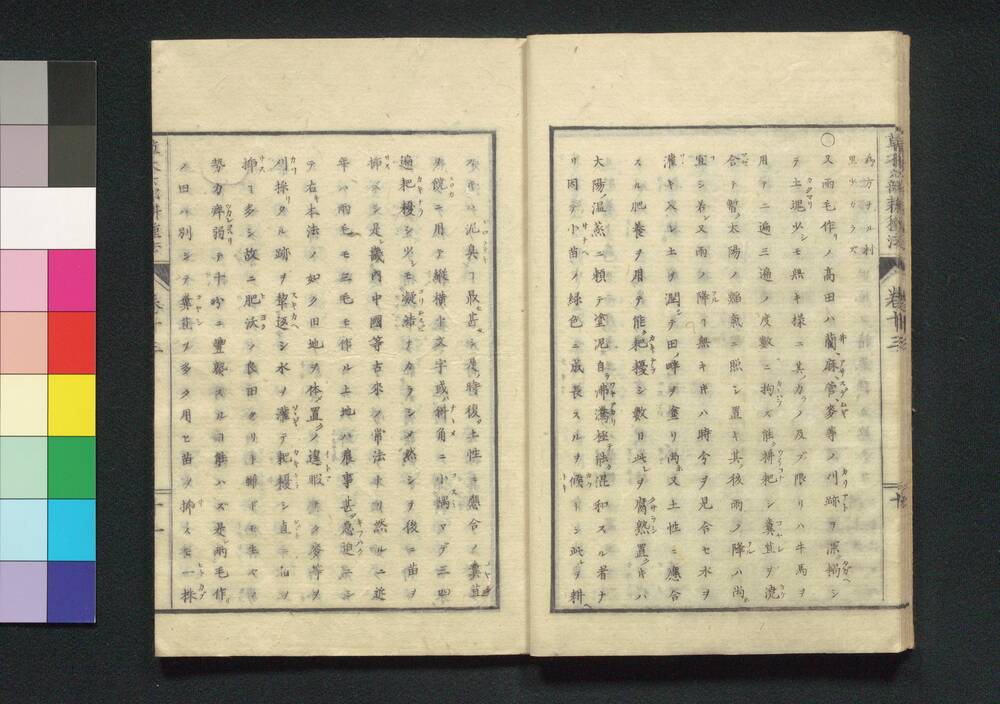 為方ヲルル利
思ウカラズ
又兩毛作ノ高田ハ藺麻菅麥等ノ刈跡ヲ深耕シ
テ土塊少シモ無キ樣ニ其力ノ及ブ限リハ牛馬ヲ
用テ二遍三遍ノ度數ニ拘ズ能耕耙シ糞苴ヲ澆
合ト暫太陽ノ煏氣ニ照シ置キ其後雨ノ降ハ尚
宜シ若又雨ノ降リ無キキハ時令ヲ見合セ水ヲ
灌キ入レ土ヲ潤シテ田ノ畔ヲ塗リ尚又土性ニ應合
スル肥養ヲ用テ能耙耰シ數日此ヲ腐熟置キハ
大陽ノ温蒸ニ頼テ塗泥自沸滿極能混和スル者ナ
リ因テ小苗ノ緑色ニ成長スルヲ候トシ此ヲ耕
泥臭フ最甚シ是時復土性ニ應合ノ糞苴
饒ニ用テ縱橫十文字或ハ斜角ニ小隅マデ三四
遍耙耰シ少シモ凝結ナカラシメ然シテ後ニ苗ヲ
挿ベシ是畿內中國等古來ノ常法ナリ然ルニ近
年ハ兩毛モ三毛モ作ル土地ハ農事甚急迫ニシ
テ右本法ノ如ク田地ヲ休置ノ遑暇ナク麥等ヲ
刈採リタル跡ヲ犂返シ水ヲ灌テ耙耰シ直ニ苗ヲ
挿フ多シ故ニ肥沃ノ良田タリト雖ドモ生ヤノ
勢力痺弱テ十分ニ豐熟スル能ハズ是兩毛作
ノ田ハ別シテ糞苴ヲ多ク用ヒ苗ヲ挿スモ一株